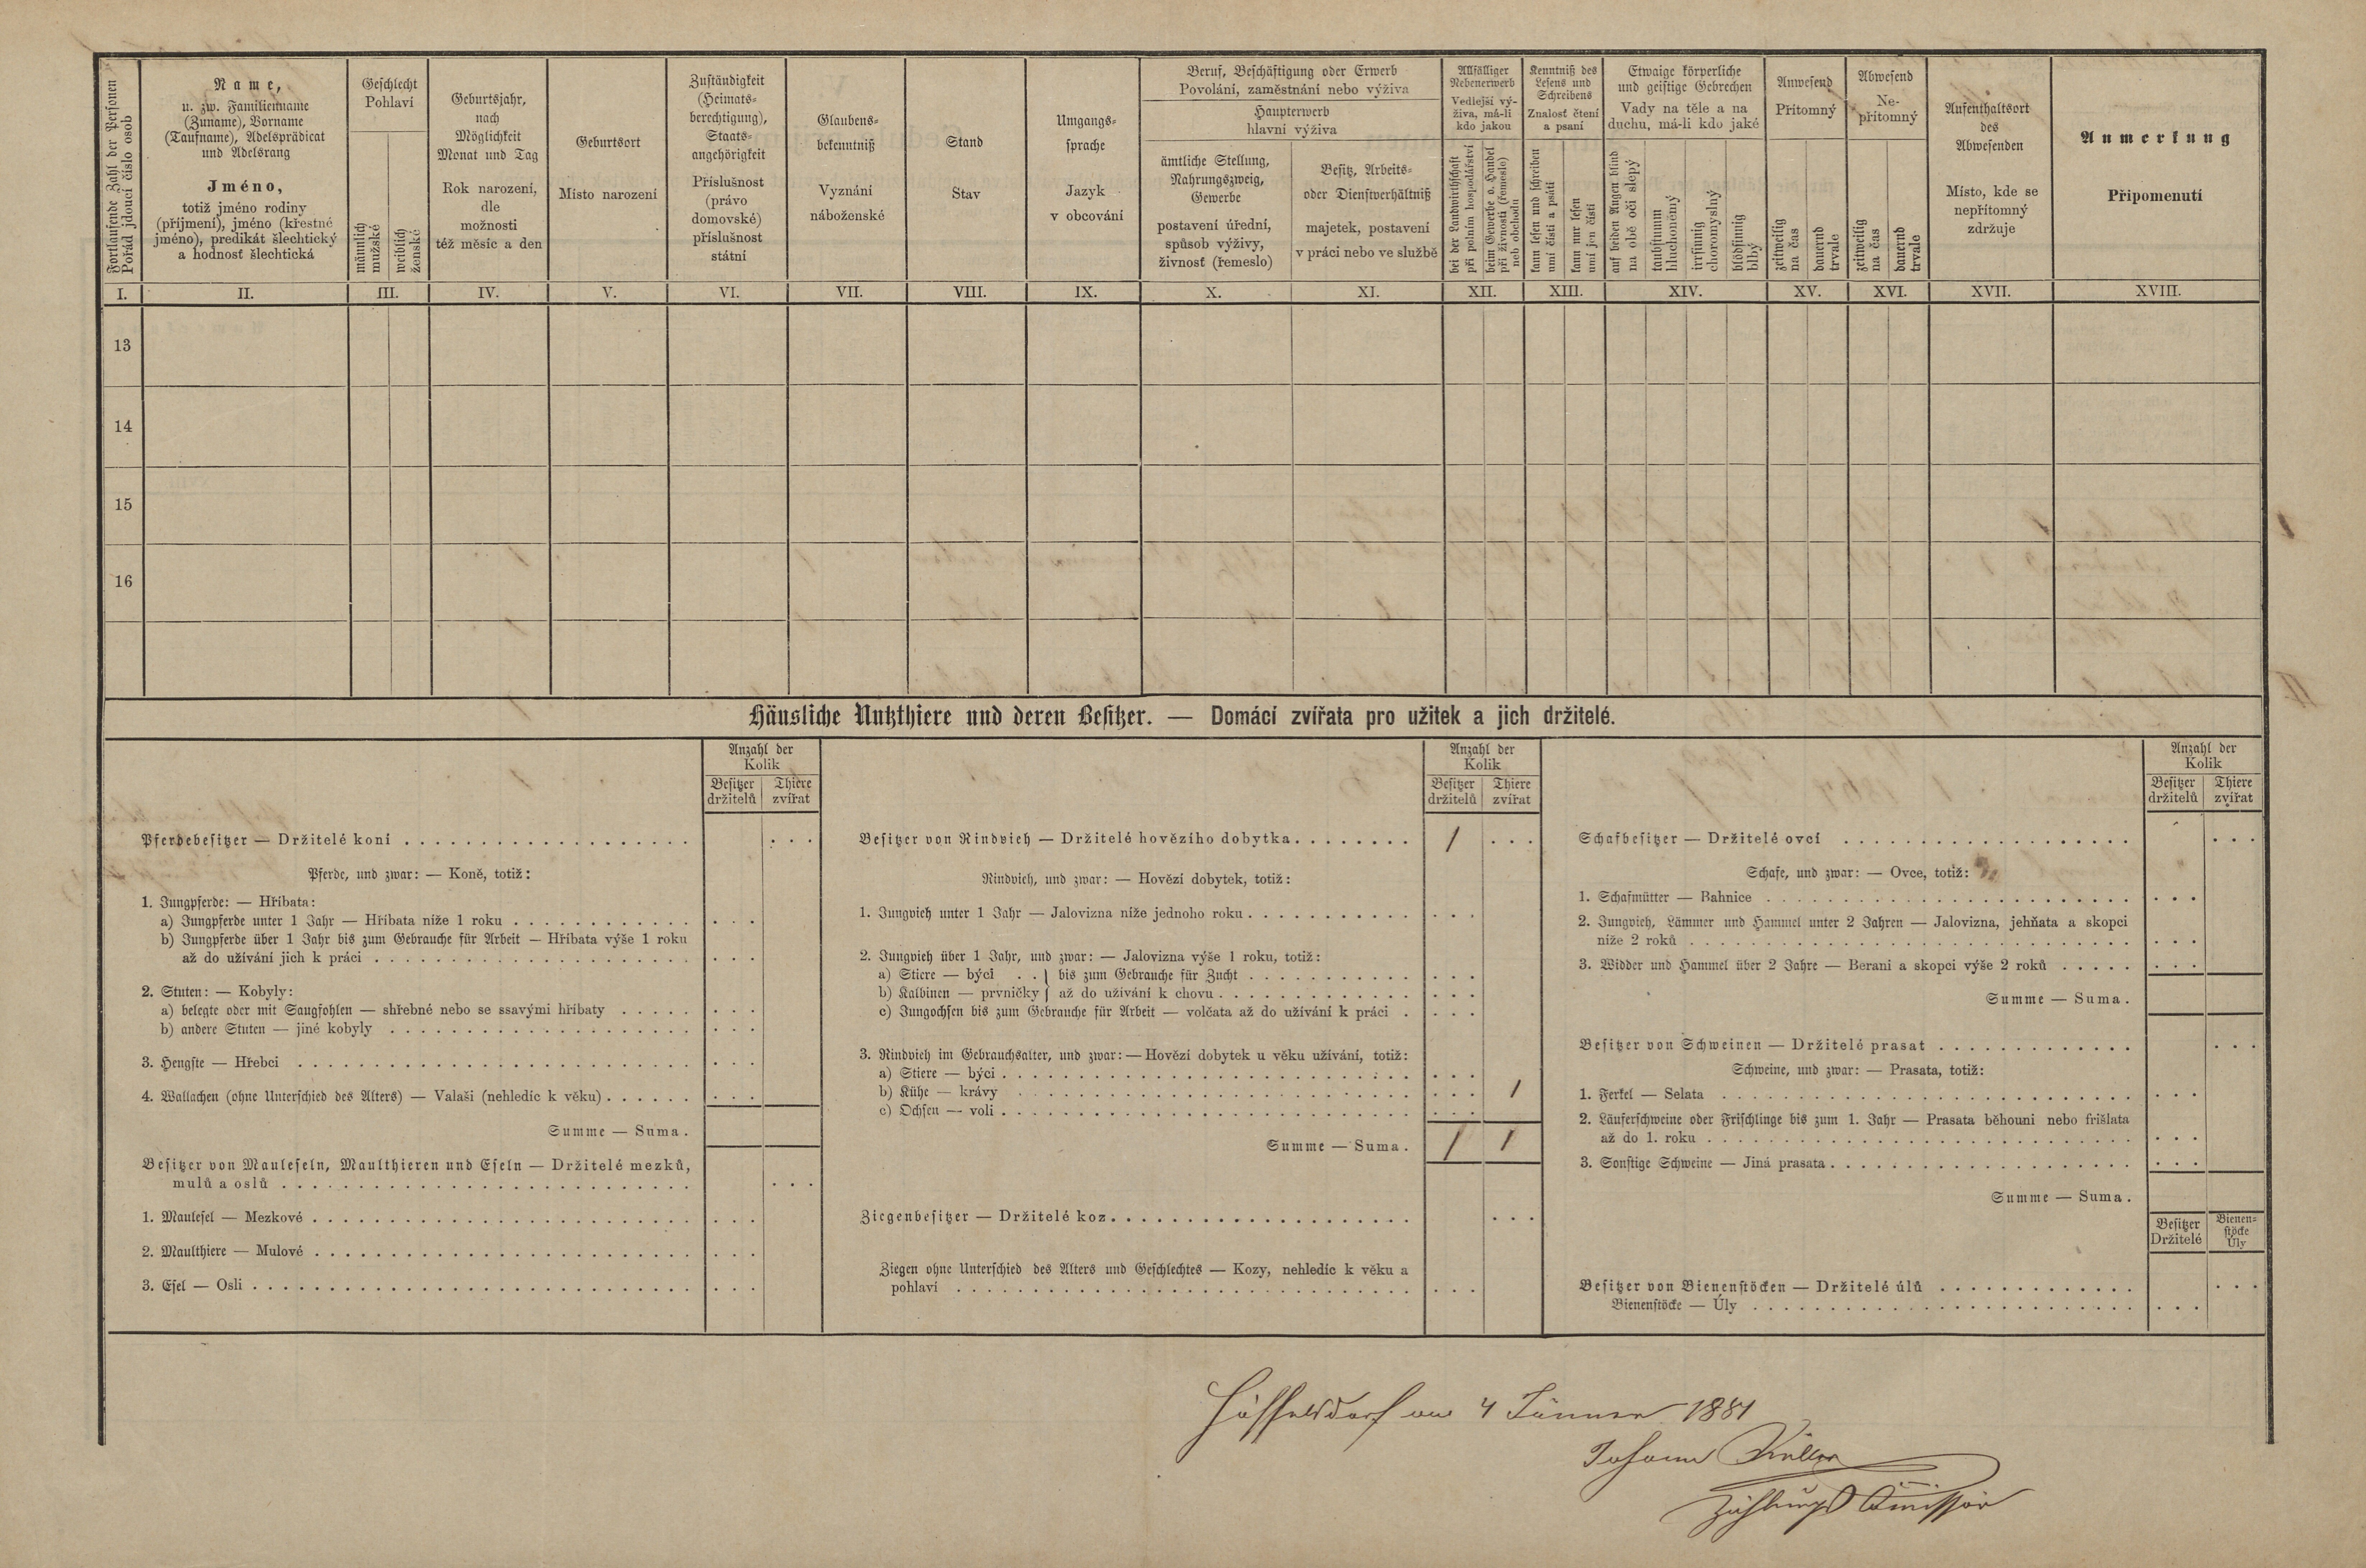 Fortlaufende Zahl der Personen
Pořád jdoucí číslo osob
Name,
u. zw. Familienname
(Zuname), Vorname
(Taufname), Adelsprädicat
und Adelsrang
Jméno,
totiž jméno rodiny
(příjmení), jméno (křestné
jméno), predikát šlechtický
a hodnosť šlechtická
Geschlecht
Pohlaví
männlich
mužské
weiblich
ženské
Geburtsjahr,
nach
Möglichkeit
Monat und Tag
Rok narození,
dle
možnosti
též měsíc a den
Geburtsort
Místo narození
Zuständigkeit
(Heimats-
berechtigung),
Staats-
angehörigkeit
Příslušnost
(právo
domovské)
příslušnost
státní
Glaubens-
bekenntniß
Vyznání
náboženské
Stand
Stav
Umgangs-
sprache
Jazyk
v obcování
Beruf, Beschäftigung oder Erwerb
Povolání, zaměstnání nebo výživa
Haupterwerb
hlavní výživa
ämtliche Stellung,
Nahrungszweig,
Gewerbe
postavení úřední,
spůsob výživy,
živnosť (řemeslo)
Besitz, Arbeits-
oder Dienstverhältniß
majetek, postavení
v práci nebo ve službě
Allfälliger
Nebenerwerb
Vedlejší vý-
živa, má-li
kdo jakou
bei der Landwirthschaft
při polním hospodářství
beim Gewerbe o. Handel
při živnosti (řemesle)
neb obchodu
Kenntniß des
Lesens und
Schreibens
Znalosť čtení
a psaní
kann lesen und schreiben
umí čísti a psáti
kann nur lesen
umí jen čísti
Etwaige körperliche
und geistige Gebrechen
Vady na těle a na
duchu, má-li kdo jaké
auf beiden Augen blind
na obě oči slepý
taubstumm
hluchoněmý
irrsinnig
choromyslný
blödsinnig
blbý
Anwesend
Přítomný
zeitweilig
na čas
dauernd
trvale
Abwesend
Ne-
přítomný
zeitweilig
na čas
dauernd
trvale
Aufenthaltsort
des
Abwesenden
Místo, kde se
nepřítomný
zdržuje
Anmerkung
Připomenutí
I. II. III. IV. V. VI. VII. VIII. IX. X. XI. XII. XIII. XIV. XV. XVI. XVII. XVIII.
13
14
15
16
Häusliche Nutzthiere und deren Besitzer. — Domácí zvířata pro užitek a jich držitelé.
Anzahl der
Kolik
Besitzer Thiere
držitelů zvířat
Pferdebesitzer — Držitelé koní
Pferde, und zwar: — Koně, totiž:
1. Jungpferde: — Hříbata:
a) Jungpferde unter 1 Jahr — Hříbata níže 1 roku
b) Jungpferde über 1 Jahr bis zum Gebrauche für Arbeit — Hříbata výše 1 roku
až do užívání jich k práci
2. Stuten: — Kobyly:
a) belegte oder mit Saugfohlen — shřebné nebo se ssavými hříbaty
b) andere Stuten — jiné kobyly
3. Hengste — Hřebci
4. Wallachen (ohne Unterschied des Alters) — Valaši (nehledíc k věku)
Summe — Suma.
Besitzer von Mauleseln, Maulthieren und Eseln — Držitelé mezků,
mulů a oslů
1. Maulesel — Mezkové
2. Maulthiere — Mulové
3. Esel — Osli
Anzahl der
Kolik
Besitzer Thiere
držitelů zvířat
Besitzer von Rindvieh — Držitelé hovězího dobytka 1
Rindvieh, und zwar: — Hovězí dobytek, totiž:
1. Jungvieh unter 1 Jahr — Jalovizna níže jednoho roku
2. Jungvieh über 1 Jahr, und zwar: — Jalovizna výše 1 roku, totiž:
a) Stiere — býci . . } bis zum Gebrauche für Zucht
b) Kalbinen — prvničky } až do užívání k chovu
c) Jungochsen bis zum Gebrauche für Arbeit — volčata až do užívání k práci
3. Rindvieh im Gebrauchsalter, und zwar: — Hovězí dobytek u věku užívání, totiž:
a) Stiere — býci
b) Kühe — krávy 1
c) Ochsen — voli
Summe — Suma. 1 1
Ziegenbesitzer — Držitelé koz
Ziegen ohne Unterschied des Alters und Geschlechtes — Kozy, nehledíc k věku a
pohlaví
Anzahl der
Kolik
Besitzer Thiere
držitelů zvířat
Schafbesitzer — Držitelé ovcí
Schafe, und zwar: — Ovce, totiž:
1. Schafmütter — Bahnice
2. Jungvieh, Lämmer und Hammel unter 2 Jahren — Jalovizna, jehňata a skopci
níže 2 roků
3. Widder und Hammel über 2 Jahre — Berani a skopci výše 2 roků
Summe — Suma.
Besitzer von Schweinen — Držitelé prasat
Schweine, und zwar: — Prasata, totiž:
1. Ferkel — Selata
2. Läuferschweine oder Frischlinge bis zum 1. Jahr — Prasata běhouni nebo frišlata
až do 1. roku
3. Sonstige Schweine — Jiná prasata
Summe — Suma.
Besitzer Bienen-
Držitelé stöcke
Úly
Besitzer von Bienenstöcken — Držitelé úlů
Bienenstöcke — Úly
am 4 Jänner 1881
Johann
Zählungs Comissär